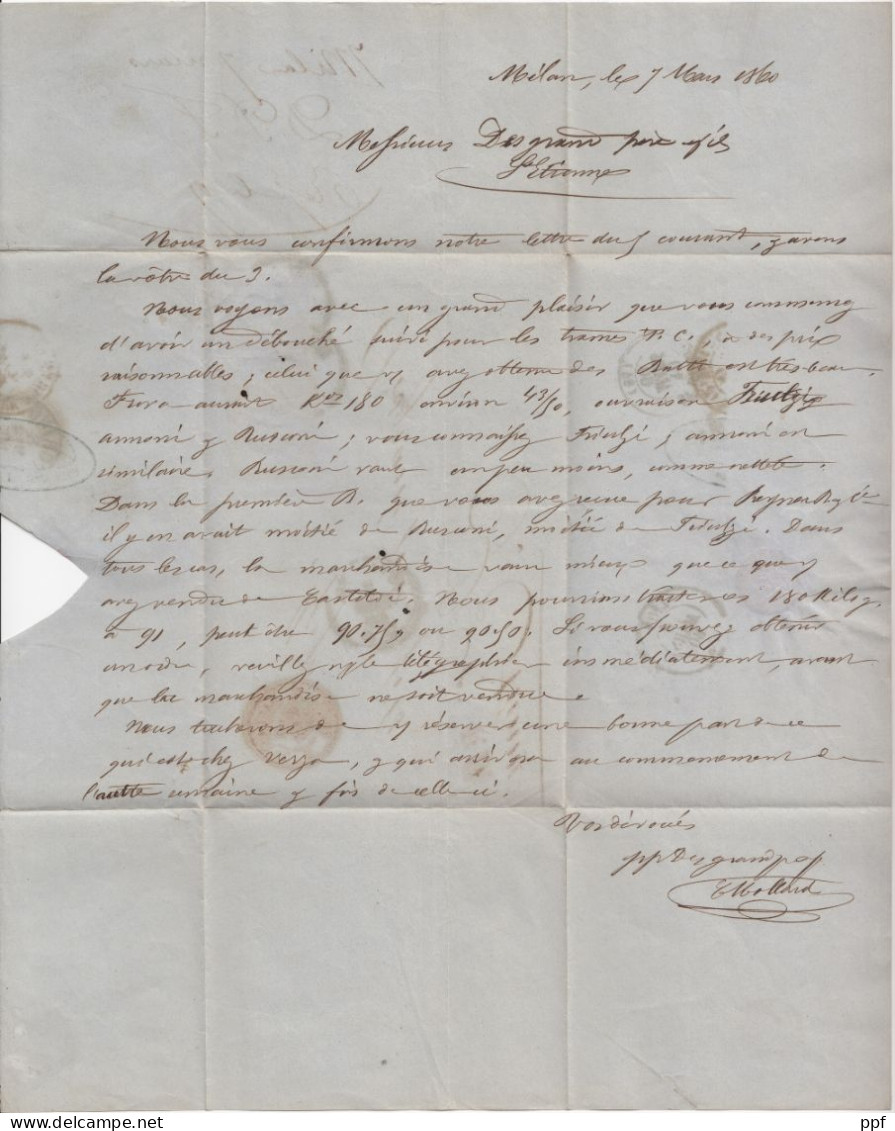 Milan, le 7 Mars 1860
Messieurs Desgrand père & fils
St Etienne
Nous vous confirmons notre lettre du 5 courant, & avons
la vôtre du 3.
Nous voyons avec un grand plaisir que vous commencez
d'avoir un débouché suivi pour les trames B. C., à des prix
raisonnables; celui que vs avez obtenu des est très beau.
aurait Kos 180 environ 48/50, ouvraison Trivulzi
annoni & Rusconi; vous connaissez Trivulzi; annoni est
similaire. Rusconi vaut un peu moins, comme netteté.
Dans la première B. que vous avez reçue pour
il y en avait moitié de Rusconi, moitié de Trivulzi. Dans
tous les cas, la marchandise vaut mieux que ce que vs
avez vendu de Nous pourrions traiter ces 180 Kilog.
à 91, peut être 90.75, ou 90.50. Si vous pouvez obtenir
un ordre, veuillez nous le télégraphier immédiatement, avant
que la marchandise ne soit vendue.
Nous tacherons de vs réserver une bonne part de ce
qui est chez Verza, & qui arrivera au commencement de
l'autre semaine & fin de celle ci.
Vos dévoués
pp Desgrand p & f